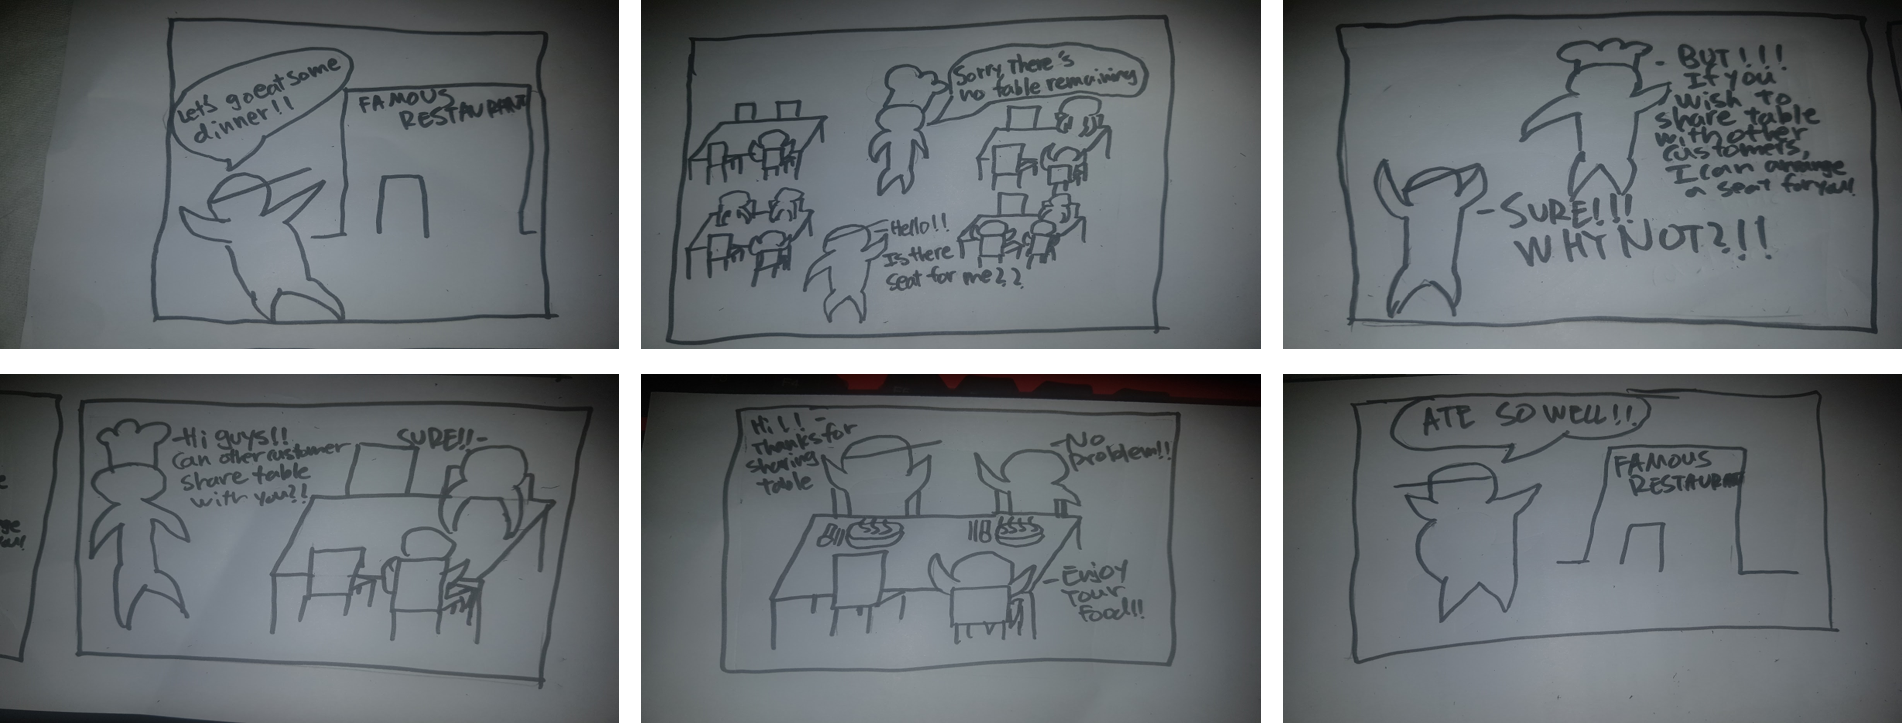 Let's go eat some
dinner!!
FAMOUS
RESTAURANT
Sorry, There's
no table remaining
Hello!!
Is there
seat for me??
- BUT!!!
If you
wish to
share table
with other
customers,
I can arrange
a seat for you!
- SURE!!!
WHY NOT?!!
- Hi guys!!
Can other customer
share table
with you??
SURE!! -
Hi!! -
Thanks for
sharing
table
- No
problem!!
- Enjoy
Your
Food!!
ATE SO WELL!!
FAMOUS
RESTAURANT